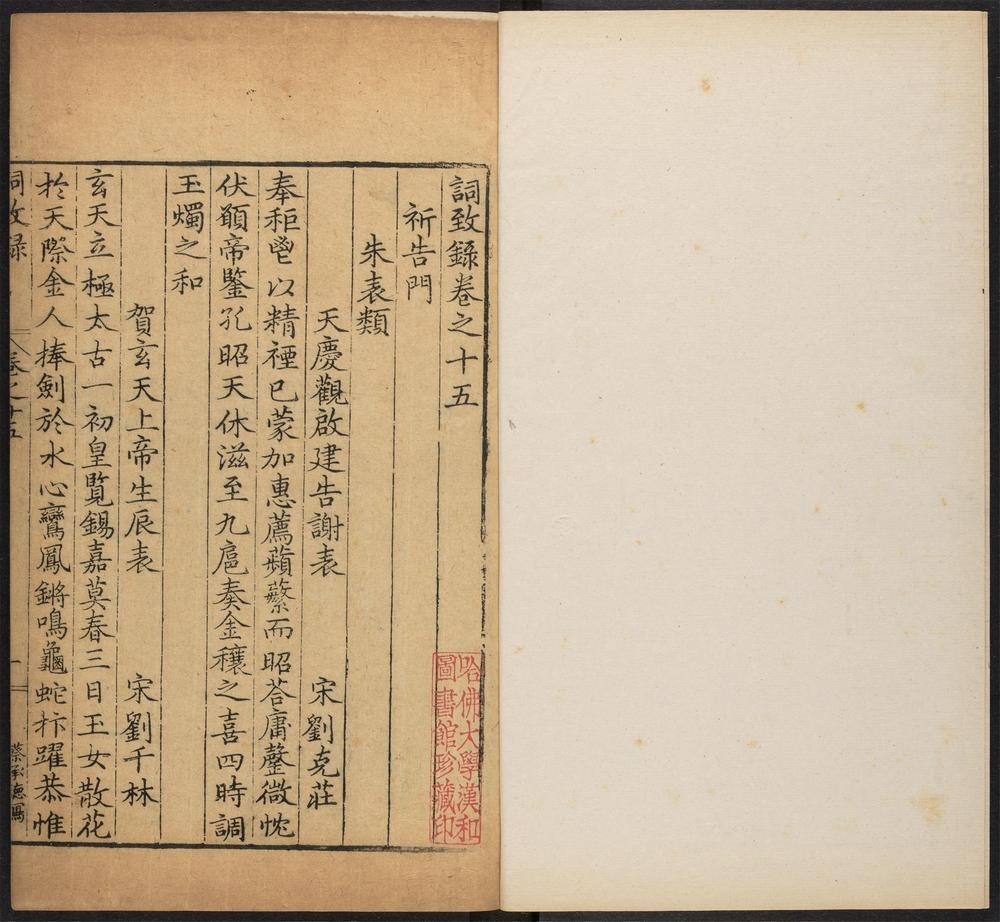 詞致錄卷之十五
祈告門
朱表類
天慶觀啟建告謝表 宋劉克莊
奉秬鬯以精禋已蒙加惠薦蘋蘩而昭荅庸罄微忱
伏願帝鑒孔昭天休滋至九扈奏金穰之喜四時調
玉燭之和
賀玄天上帝生辰表 宋劉千林
玄天立極太古一初皇覽錫嘉莫春三日玉女散花
於天際金人捧劍於水心鸞鳳鏘鳴龜蛇抃躍恭惟
詞致錄 卷之十五 一 蔡承德寫
哈佛大學漢和
圖書館珍藏印